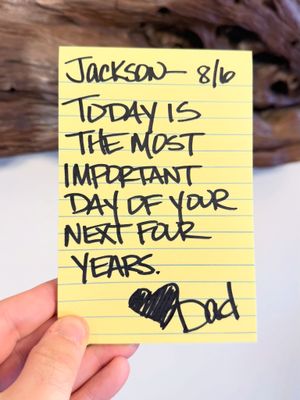 Jackson— 8/6
Today is
the most
important
day of your
next four
years.
♥ Dad